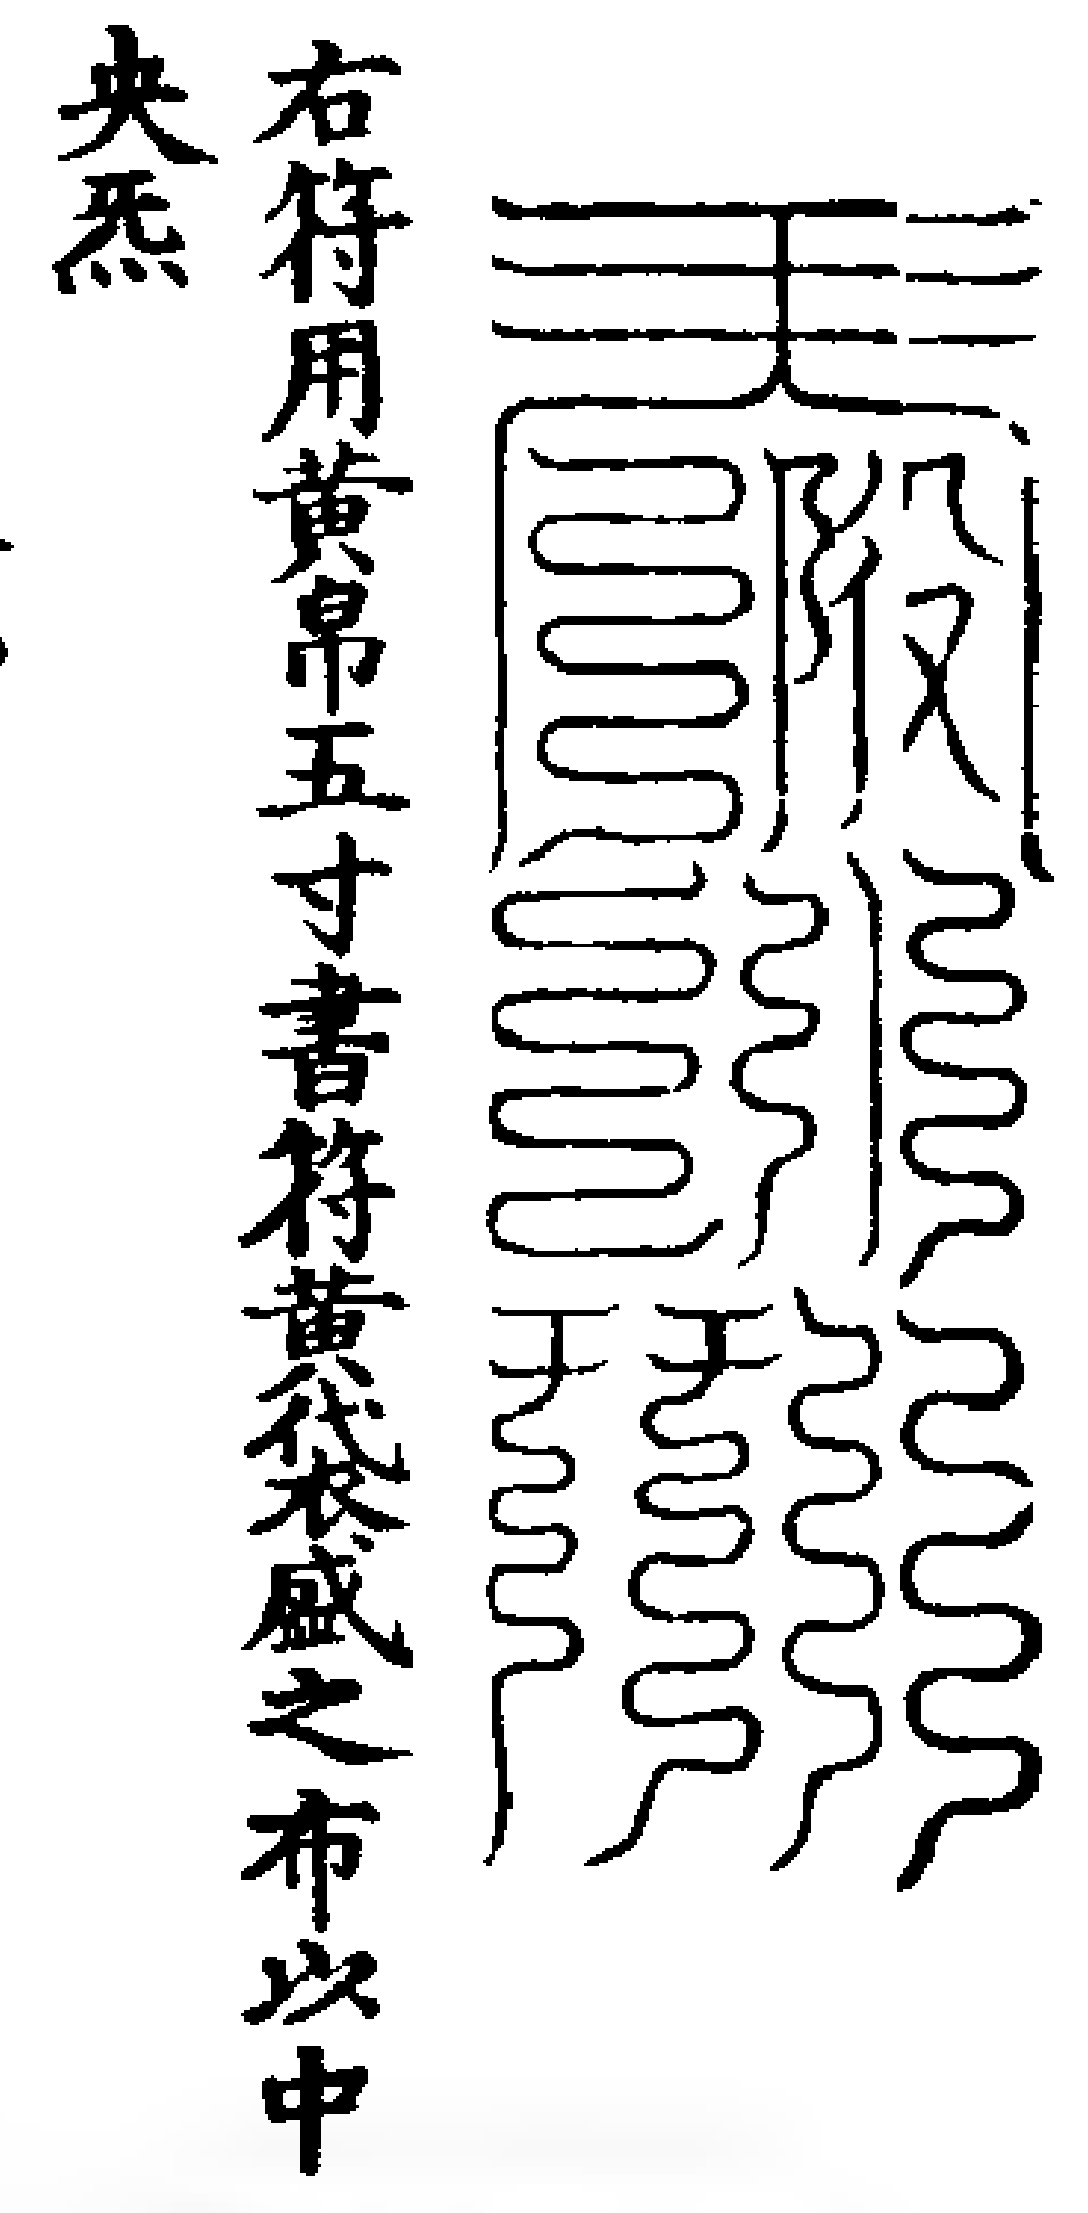 右符用黃帛五寸書符黃袋盛之布以中
央炁